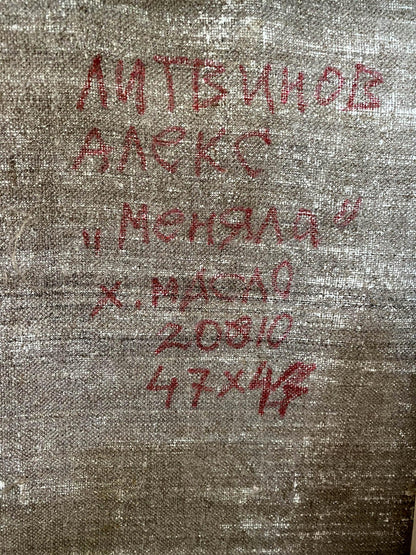 ЛИТВИНОВ
АЛЕКС
„Меняла"
х. масло
47х47